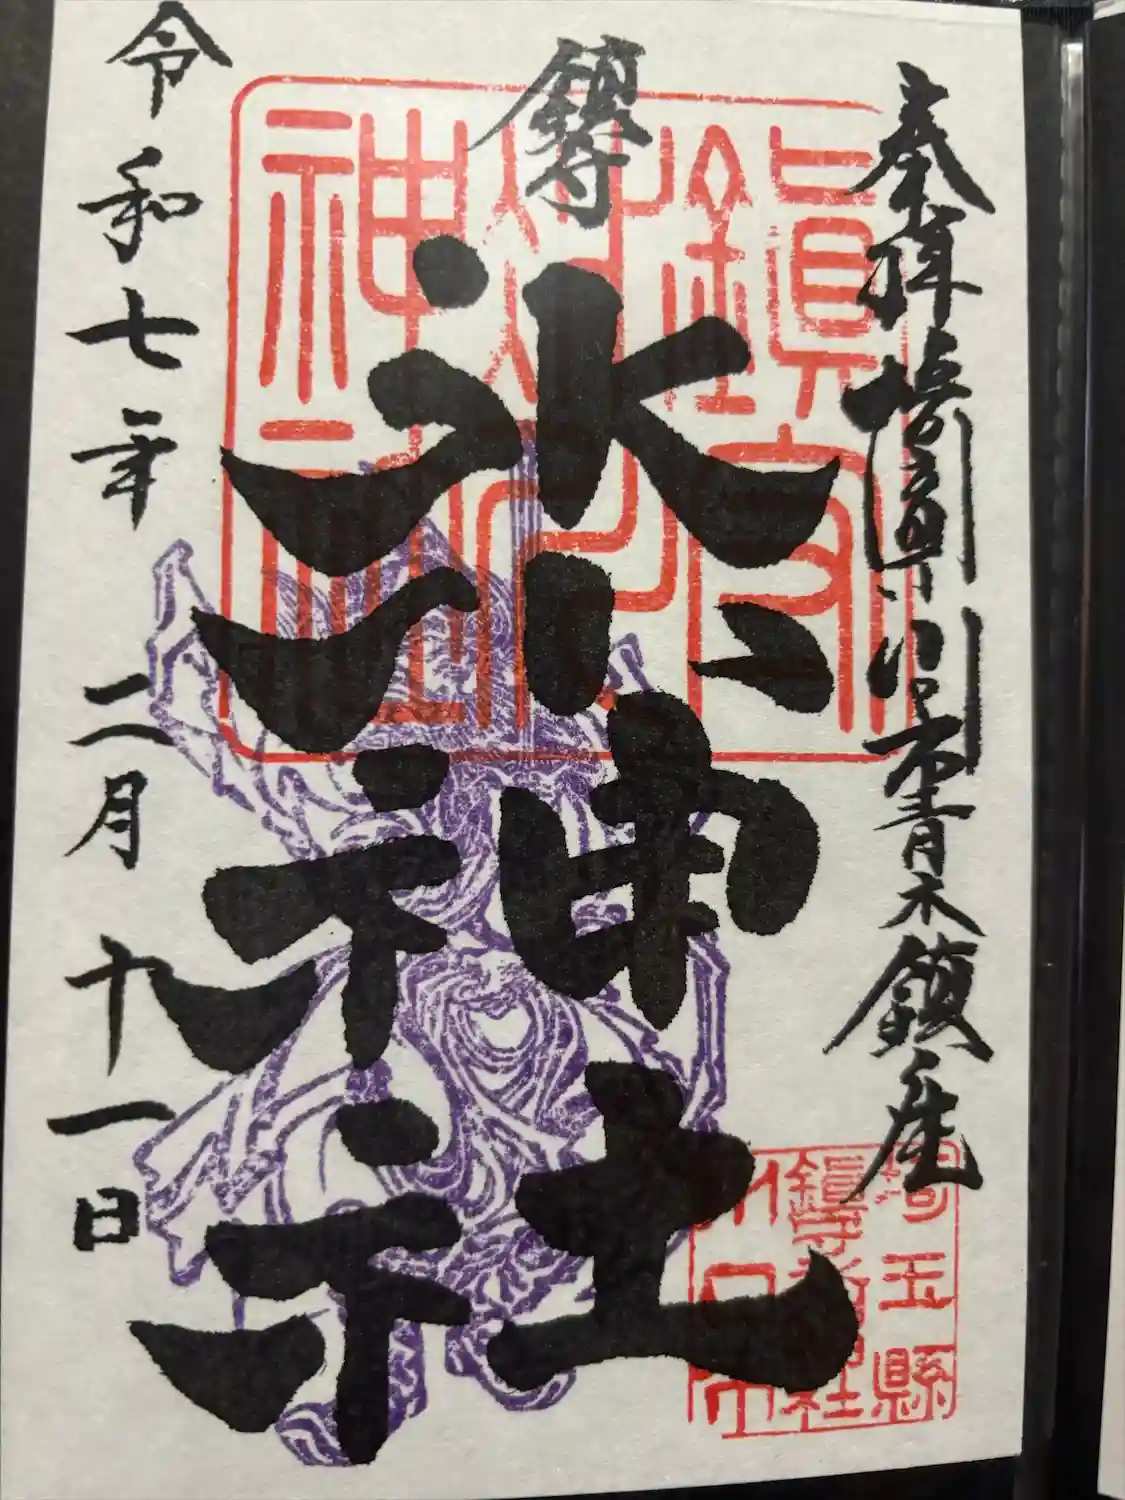 奉拝 埼玉県川口市青木鎮座
鎮守
氷川神社
令和七年二月十一日
鎮守
氷川
神社
埼玉縣
鎮守氷川神社
川口市